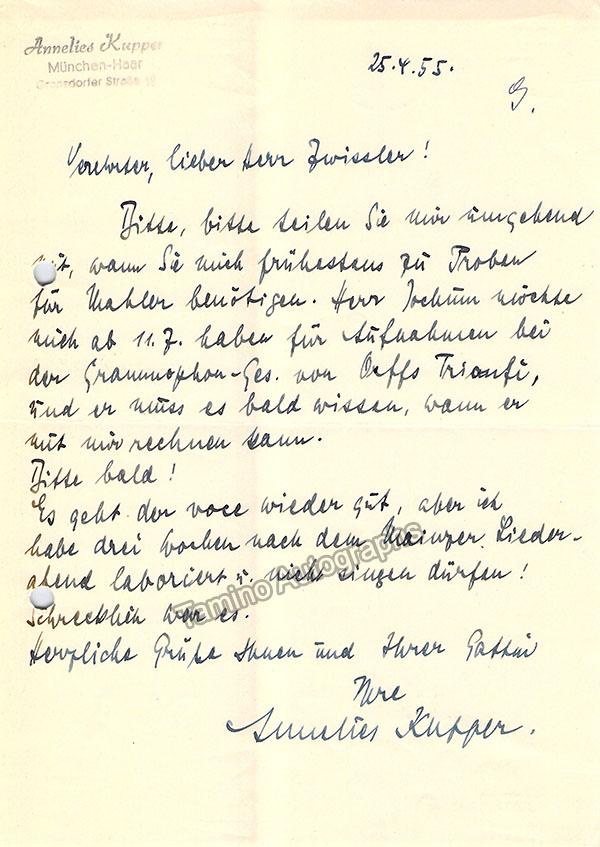 Annelies Kupper
München-Haar
Gronsdorfer Straße
25.4.55.
Verehrter, lieber Herr Zwissler!
Bitte, bitte teilen Sie mir umgehend
mit, wann Sie mich frühestens zu Proben
für Mahler benötigen. Herr Jochum möchte
mich ab 11.7. haben für Aufnahmen bei
der Grammophon-Ges. von Orffs Trionfi,
und er muss es bald wissen, wann er
mit mir rechnen kann.
Bitte bald!
Es geht der voce wieder gut, aber ich
habe drei Wochen nach dem Mainzer Lieder-
abend laboriert u. nicht singen dürfen!
Schrecklich war es.
Herzliche Grüße Ihnen und Ihrer Gattin
Ihre
Annelies Kupper.
Tamino Autographs